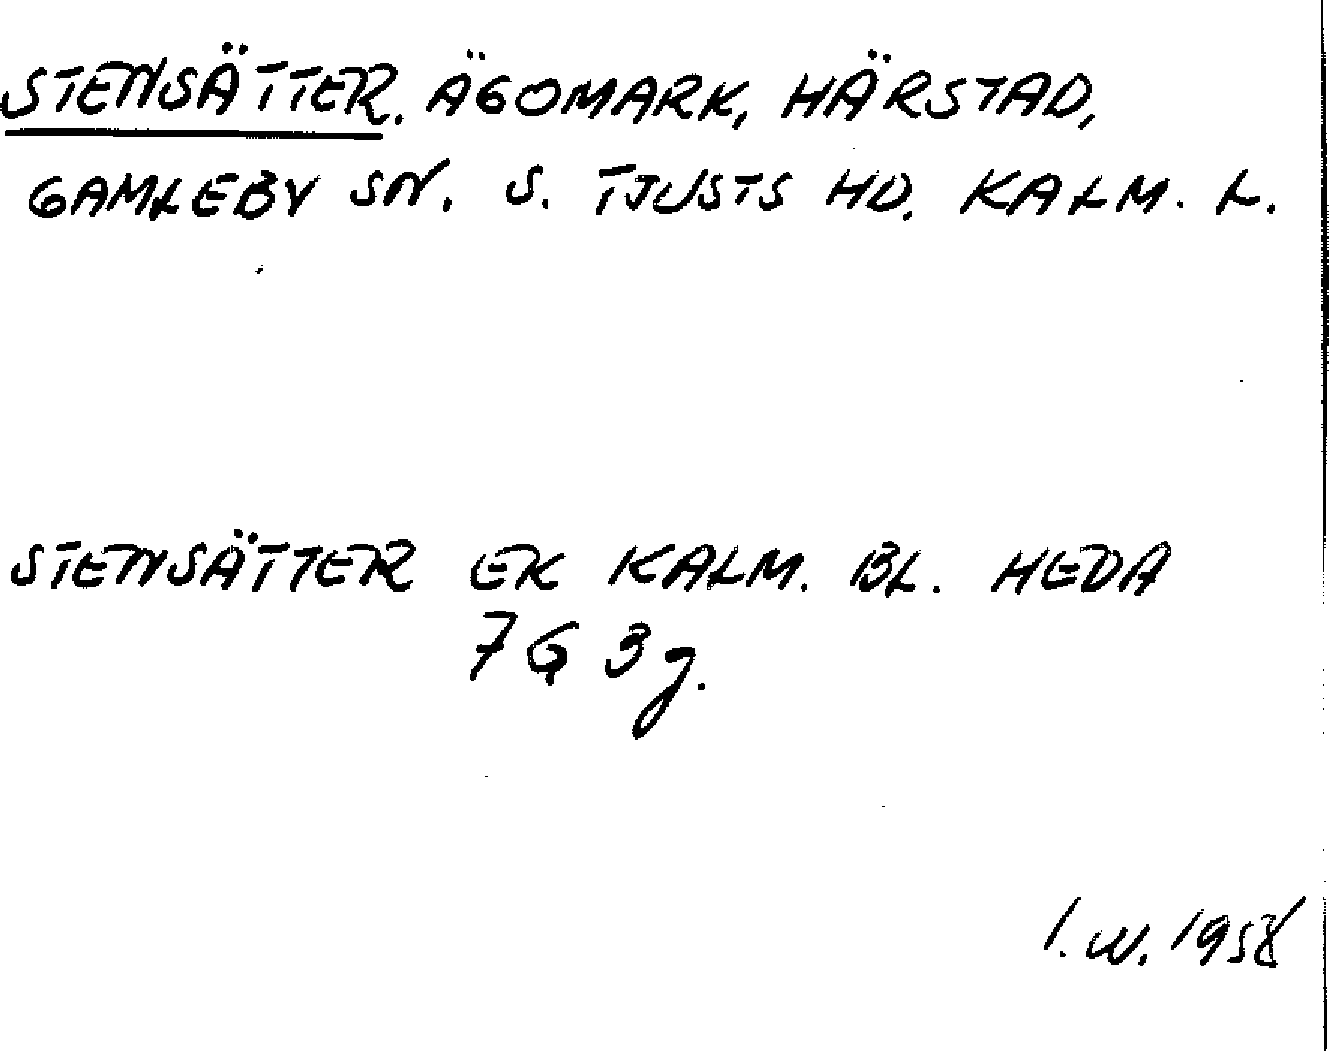 STENSÄTTER. ÄGOMARK, HÄRSTAD,
GAMLEBY SN. S. TJUSTS HD. KALM. L.
STENSÄTTER EK KALM. BL. HEDA
7G 3g.
I. W. 1958